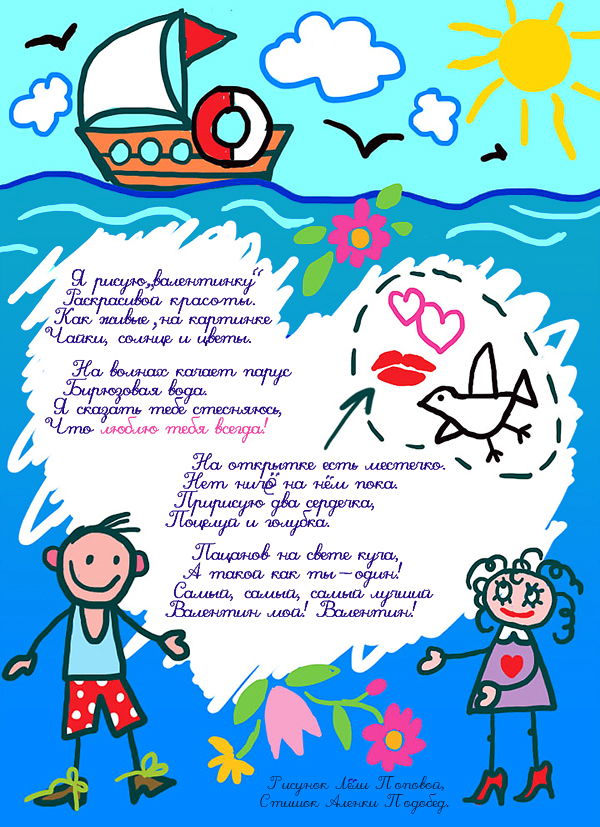 Я рисую „валентинку“
Раскрасивой красоты.
Как живые, на картинке
Чайки, солнце и цветы.
На волнах качает парус
Бирюзовая вода.
Я сказать тебе стесняюсь,
Что люблю тебя всегда!
На открытке есть местечко.
Нет ничё на нём пока.
Пририсую два сердечка,
Поцелуй и голубка.
Пацанов на свете куча,
А такой как ты — один!
Самый, самый, самый лучший
Валентин мой! Валентин!
Рисунок Лёши Поповой,
Стишок Аленки Подобед.